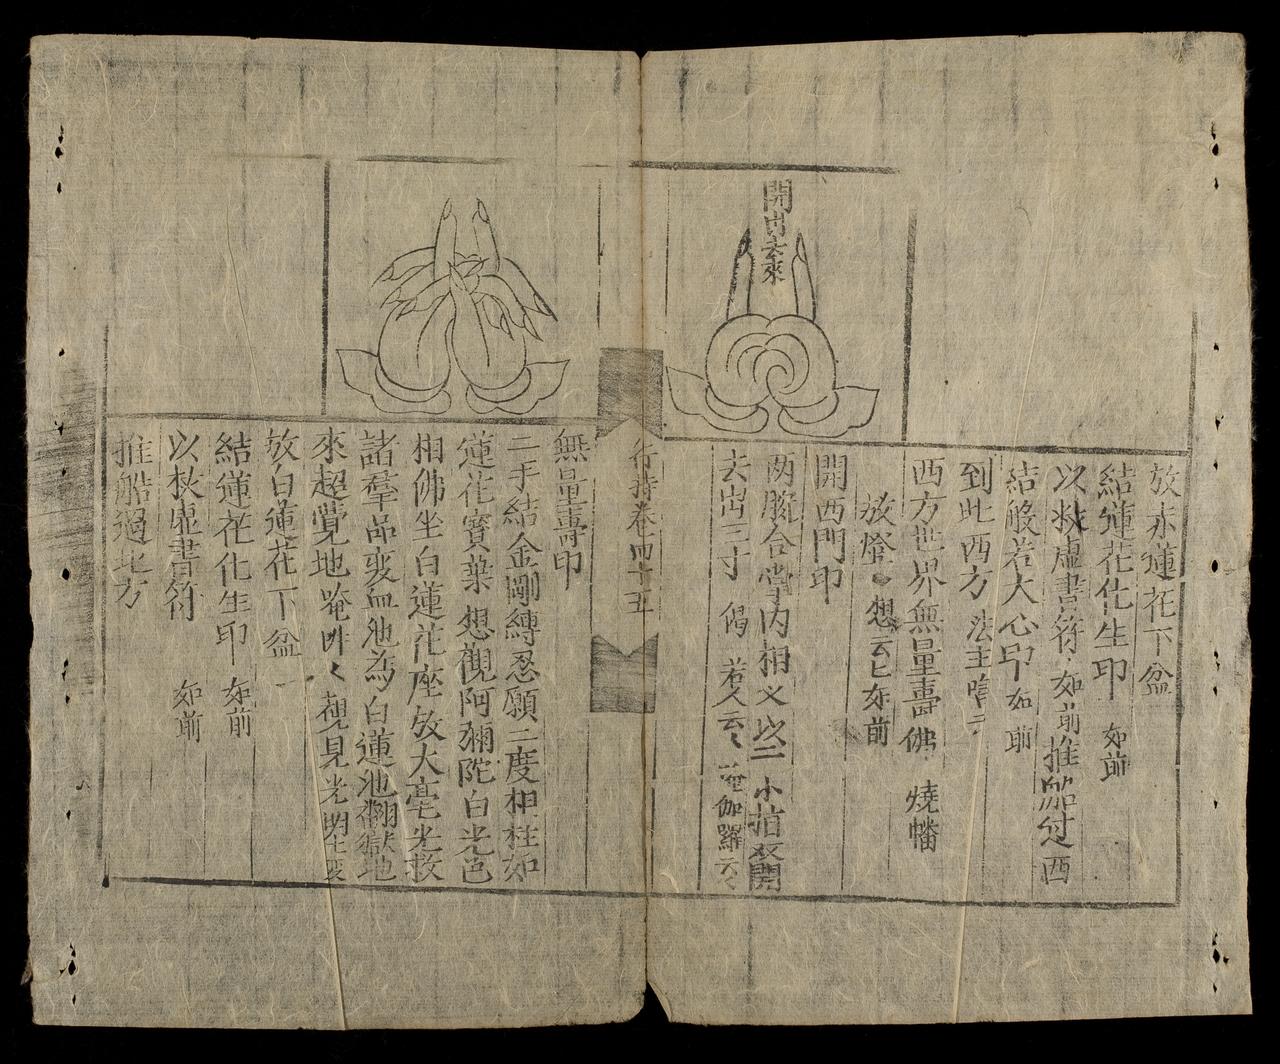 放赤蓮花下盆
結蓮花化生印 如前
以救虛書符 如前推船过西
結般若大心印 如前
到此西方 法主
西方世界無量壽佛 燒幡
放燈 想云已如前
開西門印
開出去來
两腕合掌内相义以二小指開
去出三寸 偈 若人云云 伽羅云云
行持卷四十五
無量壽印
二手結金剛縛忍願二度相柱如
蓮花寳葉 想觀阿彌陀白光邑
相佛坐白蓮花座放大毫光救
諸羣品变血池為白蓮池翻獄地
來超覺地唵吽 觀見光明生
放白蓮花下盆
結蓮花化生印 如前
以杖虛書符 如前
推船過北方